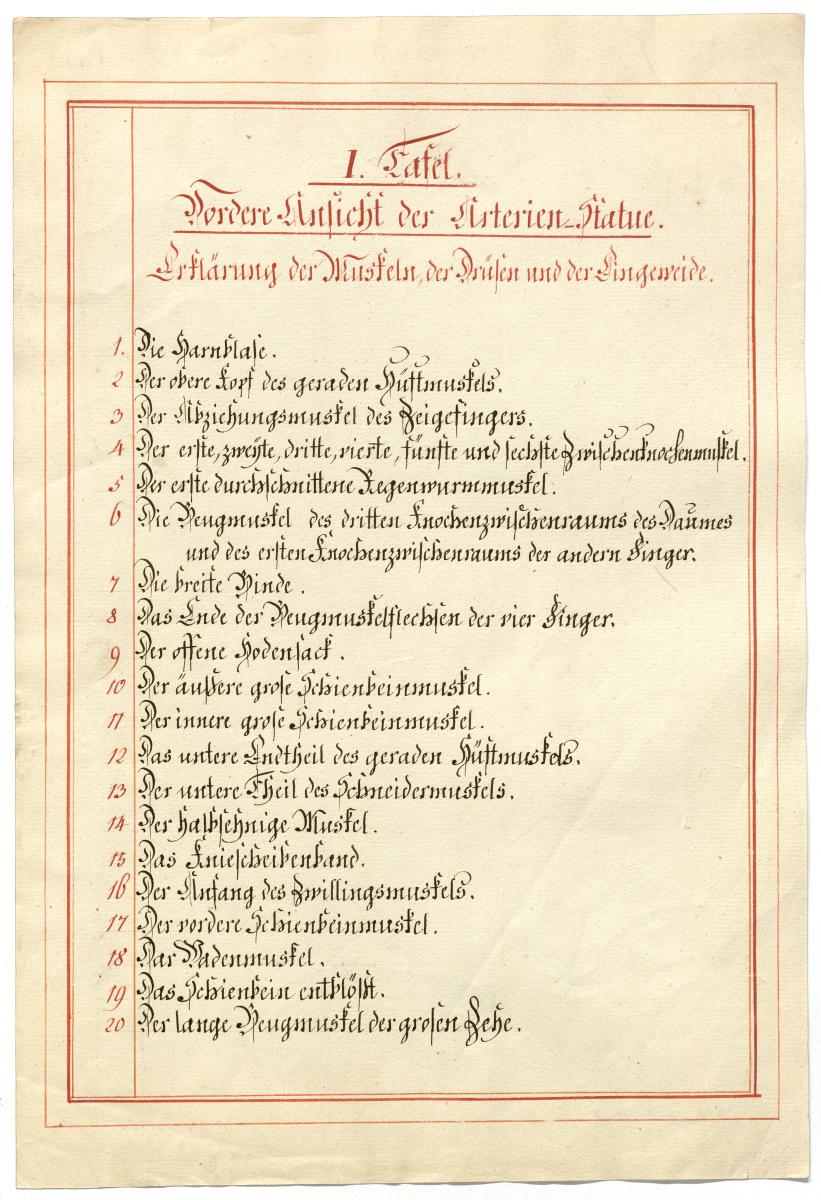 I. Tafel.
Vordere Ansicht der Arterien-Statue.
Erklärung der Muskeln, der Drüsen und der Eingeweide.
1. Die Harnblase.
2 Der obere Kopf des geraden Hüftmuskels.
3 Der Abziehungsmuskel des Zeigefingers.
4 Der erste, zweÿte, dritte, vierte, fünfte und sechste Zwischenknochenmuskel.
5 Der erste durchschnittene Regenwurmmuskel.
6 Die Beugmuskel des dritten Knochenzwischenraums des Daumes
und des ersten Knochenzwischenraums der andern Finger.
7 Die breite Binde.
8 Das Ende der Beugmuskelflechsen der vier Finger.
9 Der offene Hodensack.
10 Der äußere grose Schienbeinmuskel.
11 Der innere grose Schienbeinmuskel.
12 Das untere Endtheil des geraden Hüftmuskels.
13 Der untere Theil des Schneidermuskels.
14 Der halbsehnige Muskel.
15 Das Kniescheibenband.
16 Der Anfang des Zwillingsmuskels.
17 Der vordere Schienbeinmuskel.
18 Dar Wadenmuskel.
19 Das Schienbein entblößt.
20 Der lange Beugmuskel der grosen Zehe.